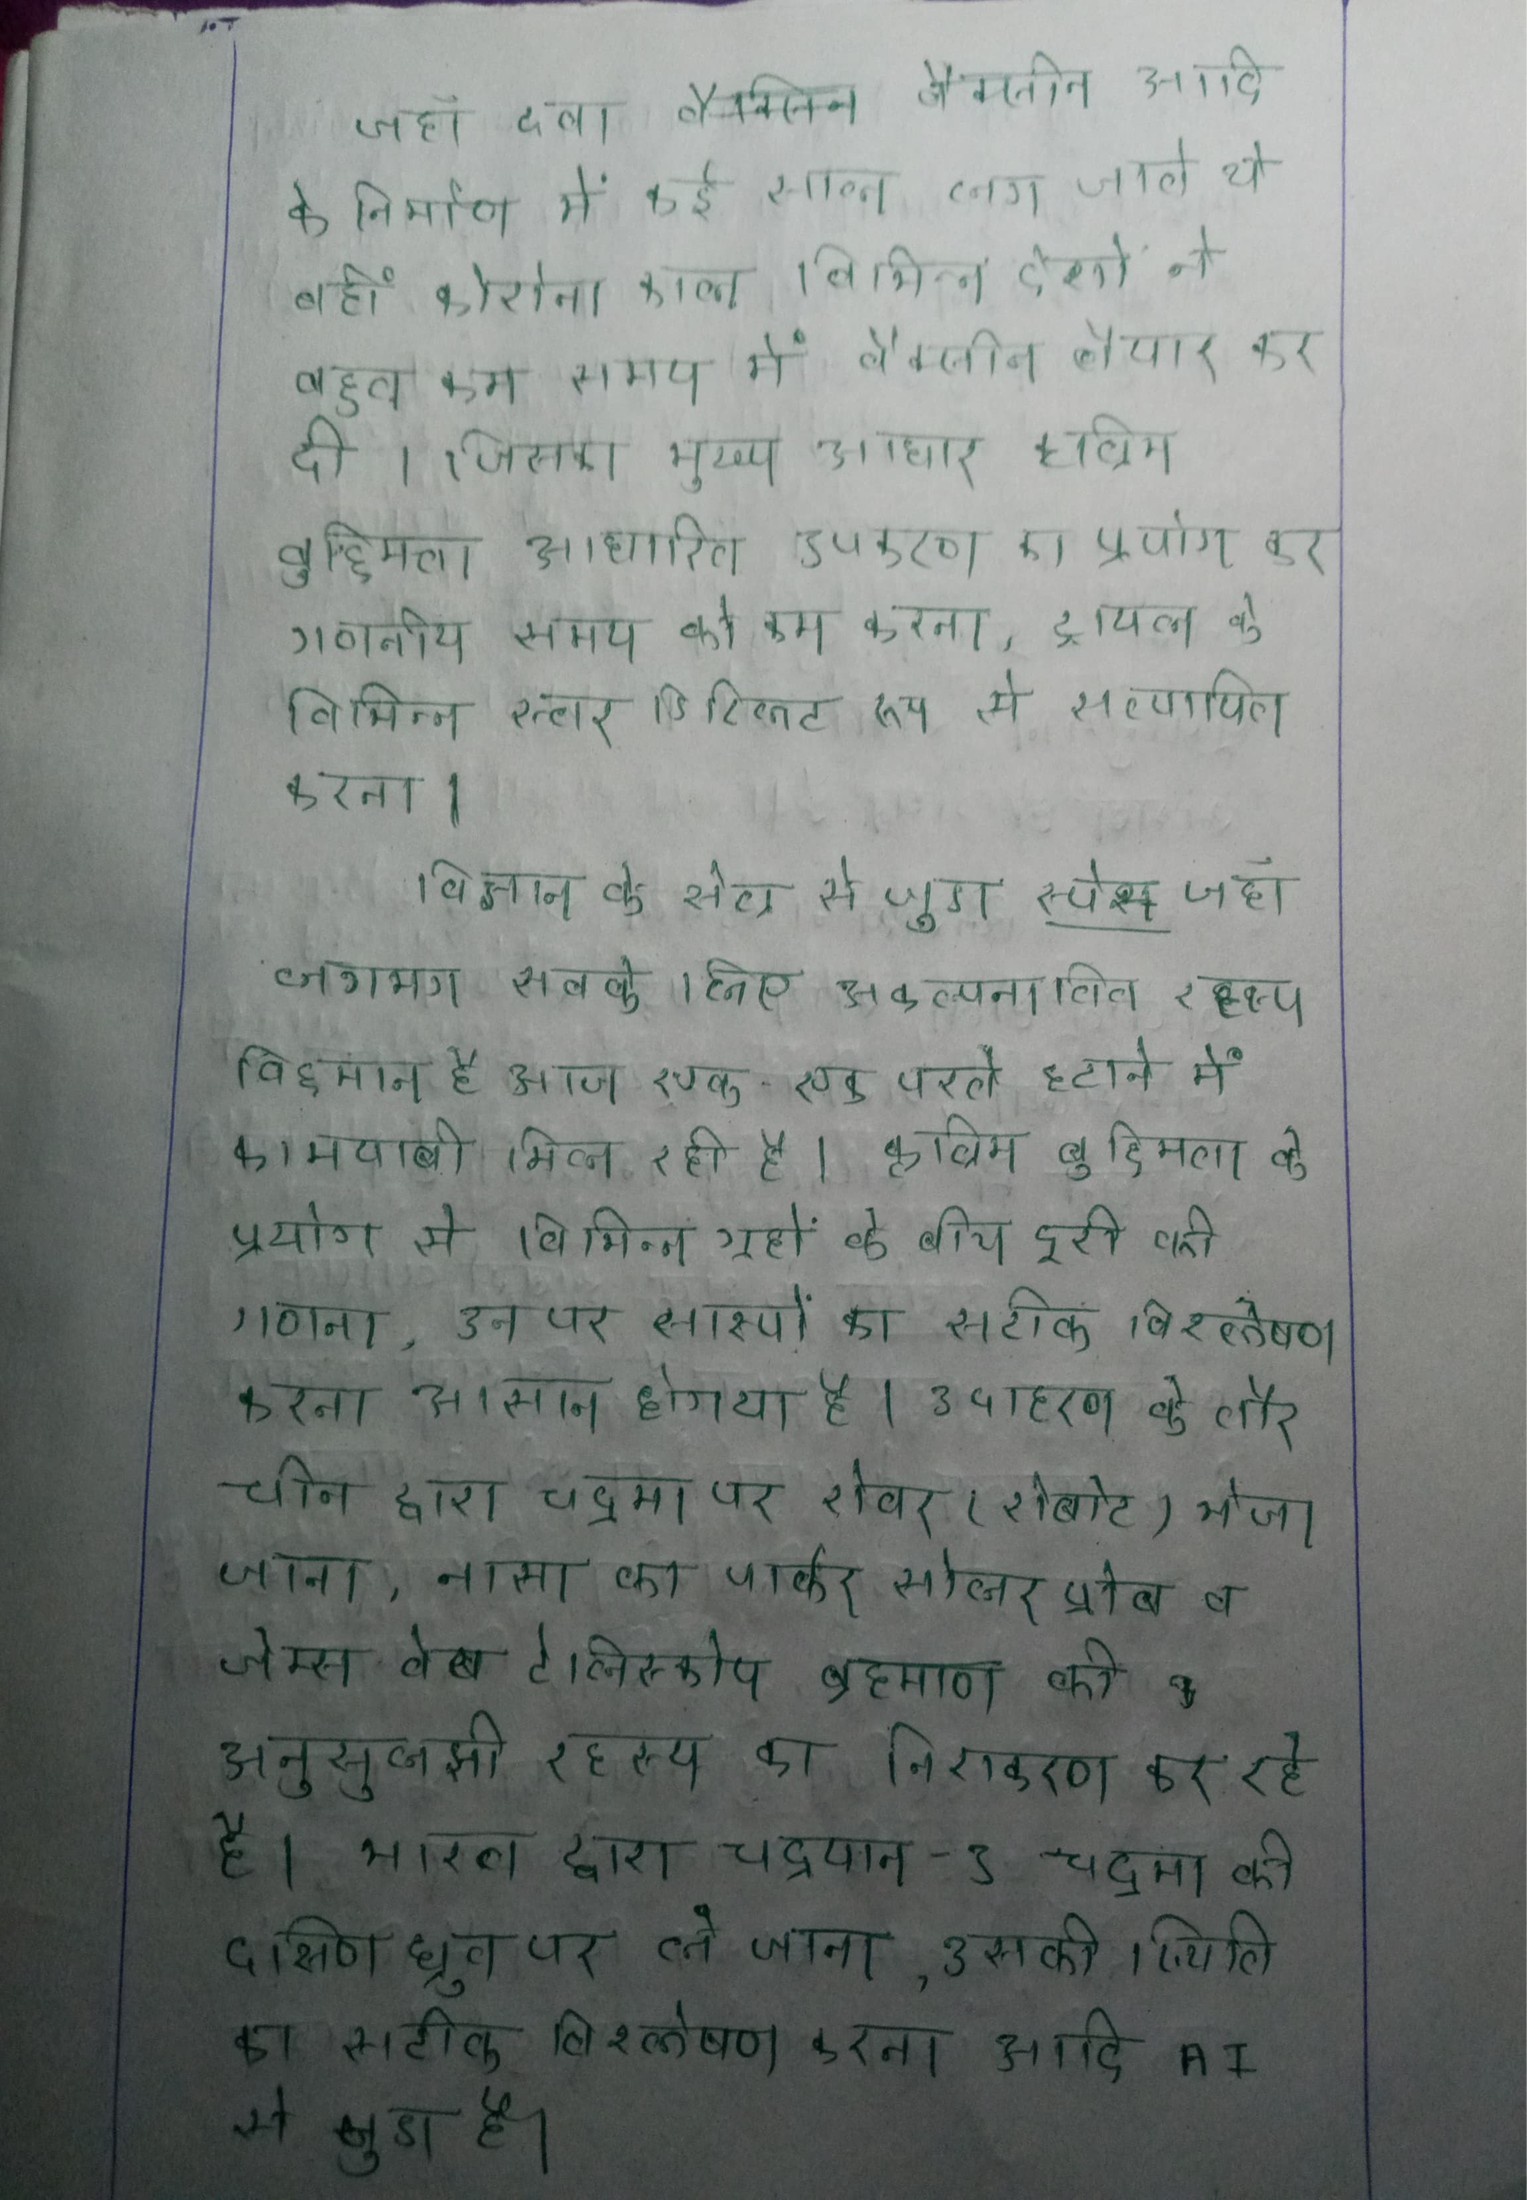 जहाँ दवा वैक्सिन वैक्सीन आदि
के निर्माण में कई साल लग जाते थे
वहीं कोरोना काल विभिन्न देशों ने
बहुत कम समय में वैक्सीन तैयार कर
दी । जिसका मुख्य आधार कृत्रिम
बुद्धिमता आधारित उपकरण का प्रयोग कर
गणनीय समय को कम करना, ट्रायल के
विभिन्न स्तर डिटिलट रूप से सत्यापित
करना ।
विज्ञान के क्षेत्र से जुडा स्पेस जहाँ
लगभग सबके लिए अकल्पनातित रहस्य
विद्दमान है आज एक-एक परते हटाने में
कामयाबी मिल रही है । कृत्रिम बुद्दिमता के
प्रयोग से विभिन्न ग्रहों के बीच दूरी की
गणना, उन पर साक्ष्यों का सटीक विश्लेषण
करना आसान होगया है । उदाहरण के तौर
चीन द्वारा चद्रमा पर रोवर (रोबोट) भेजा
जाना, नासा का पार्कर सोलर प्रोब व
जेम्स वेब टेलिस्कोप ब्रहमाण की
अनुसुलझी रहस्य का निराकरण कर रहे
है । भारत द्वारा चद्रयान-3 चद्रमा की
दक्षिण ध्रुव पर ले जाना, उसकी स्थिति
का सटीक विश्लेषण करना आदि AI
से जुडा है ।